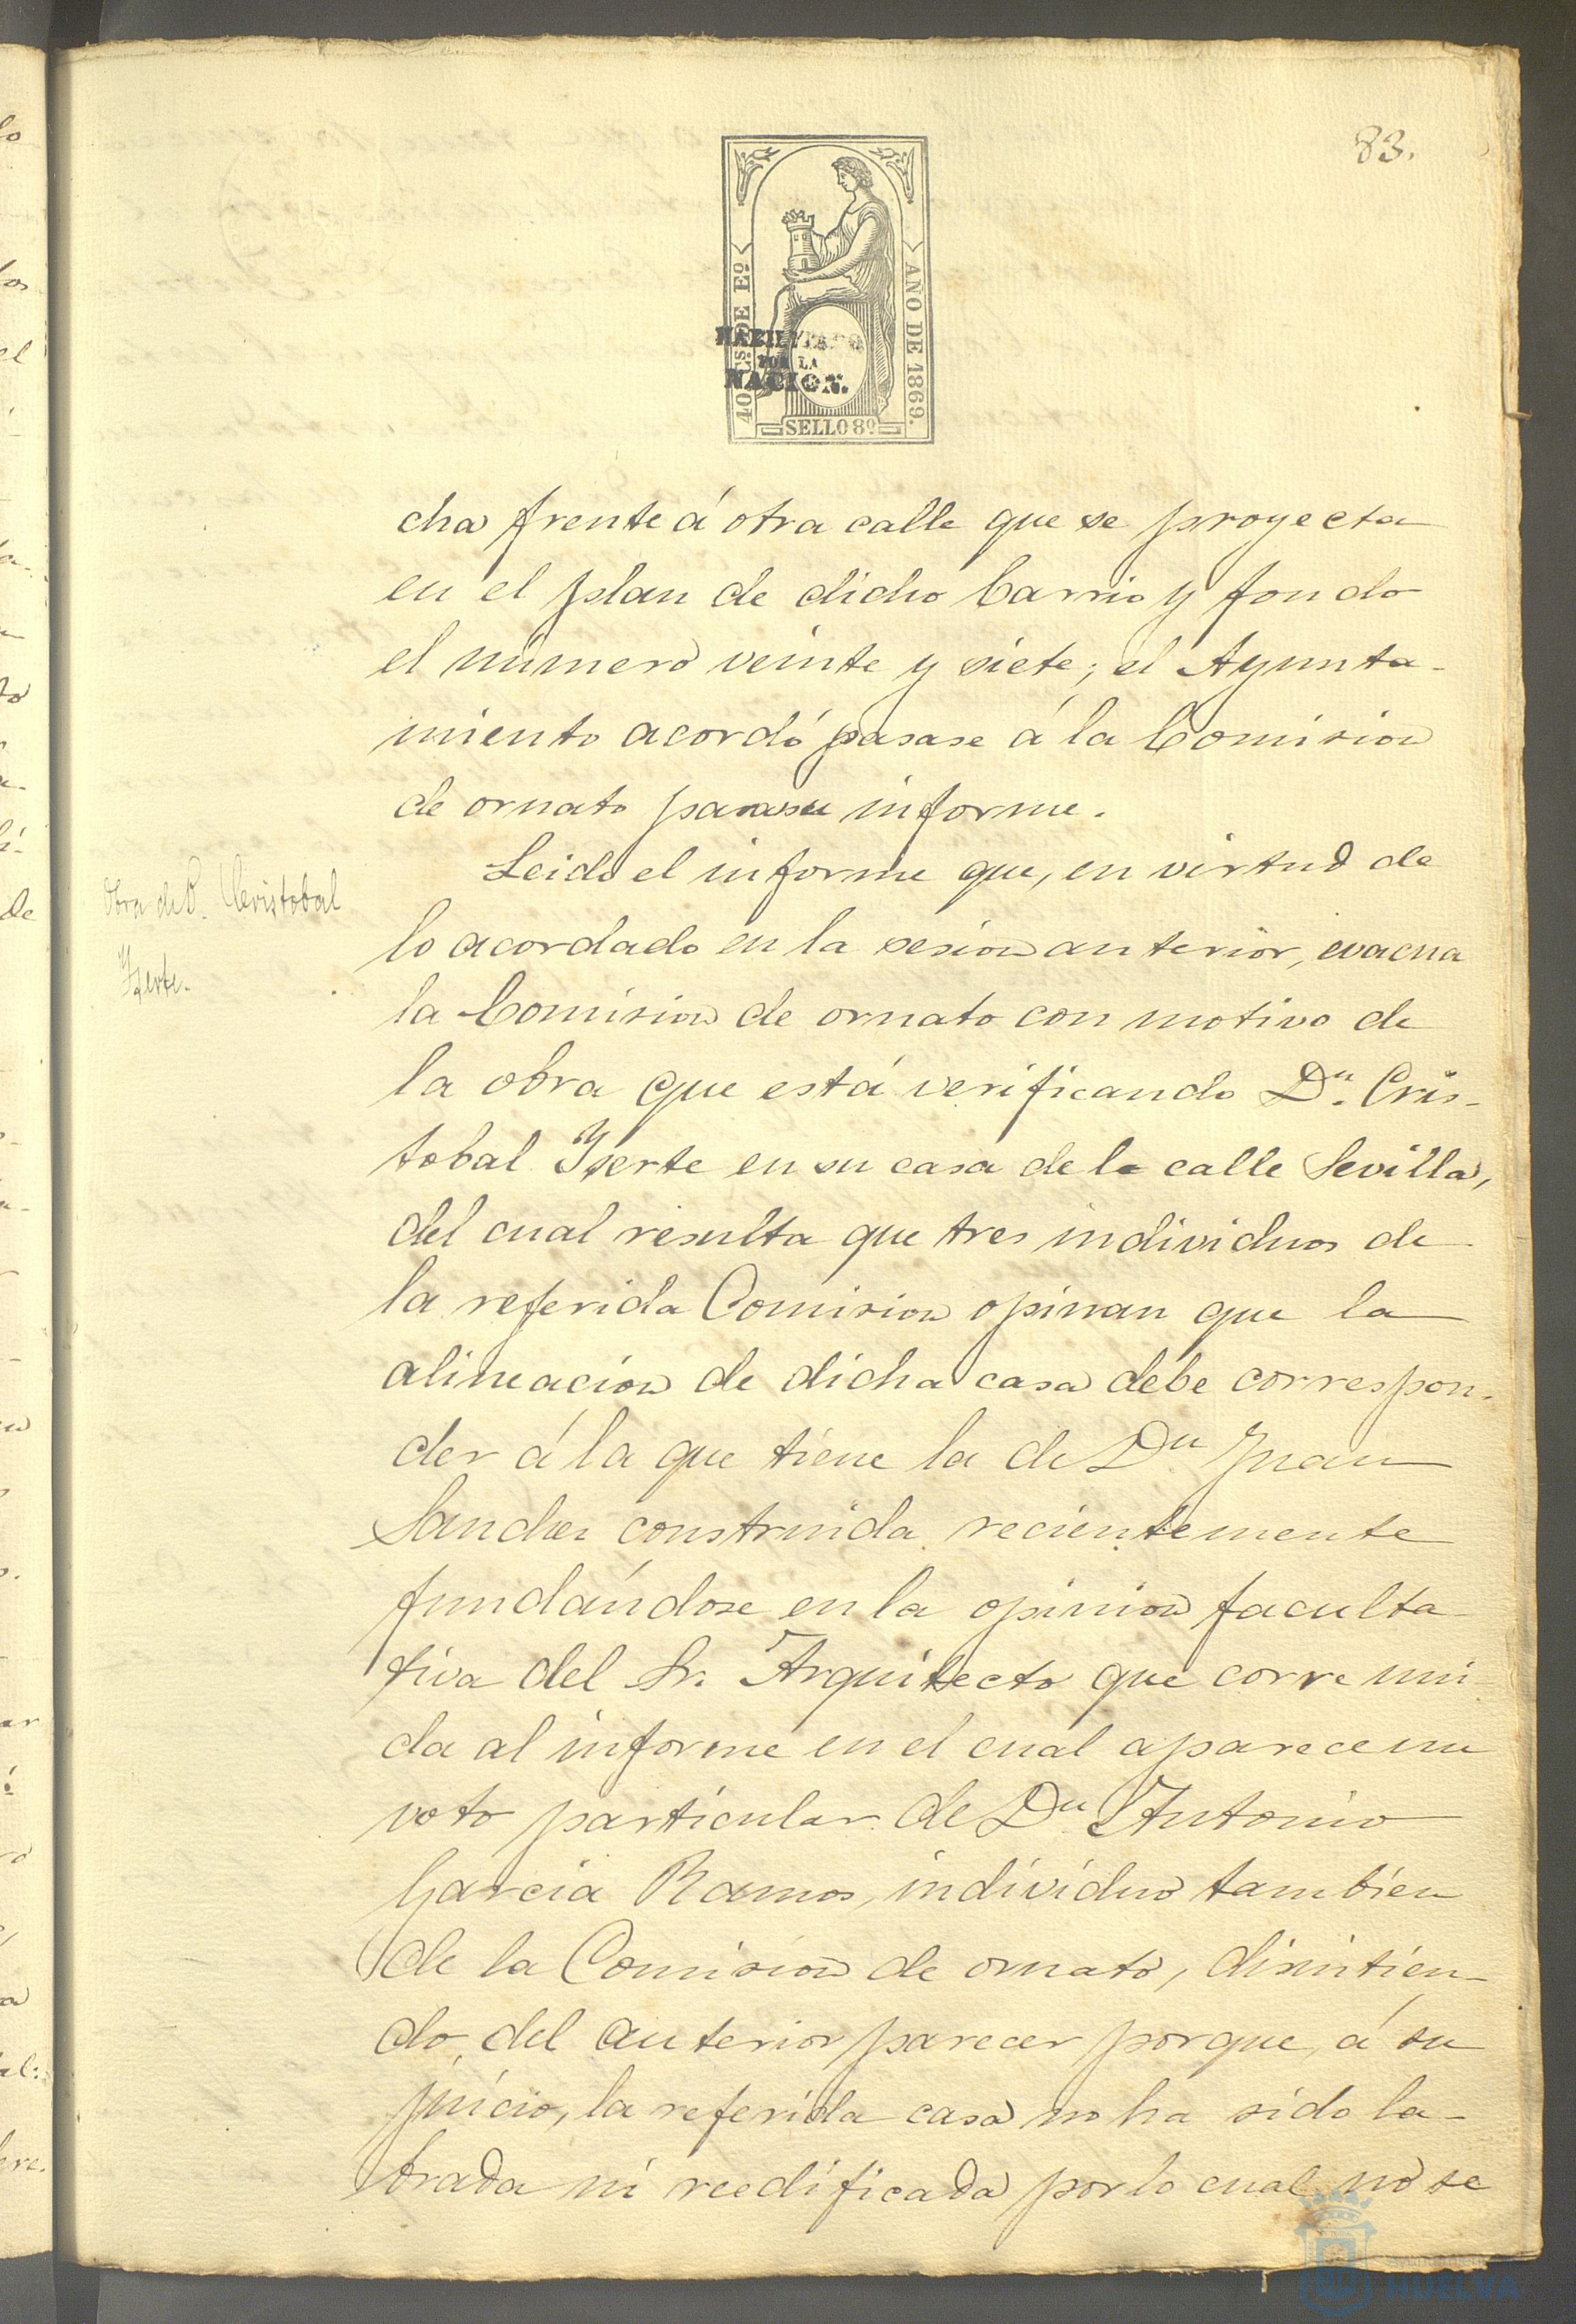 83.
40 Cs. DE Eº
AÑO DE 1869.
HABILITADO
POR LA
NACION.
SELLO 8º
cha frente á otra calle que se proyecta
en el plan de dicho barrio y fondo
el número veinte y siete; el Ayunta-
miento acordó pasase á la Comision
de ornato para su informe.
Obra de D. Cristobal
Yserte.
Leido el informe que, en virtud de
lo acordado en la sesion anterior, evacua
la Comision de ornato con motivo de
la obra que está verificando Dn. Cris-
tobal Yserte en su casa de la calle Sevilla,
del cual resulta que tres individuos de
la referida Comision opinan que la
alineacion de dicha casa debe correspon-
der á la que tiene la de Dn Juan
Sanchez construida recientemente
fundándose en la opinion faculta-
tiva del Sr. Arquitecto que corre uni-
da al informe en el cual aparece un
voto particular de Dn Antonio
Garcia Ramos, individuo tambien
de la Comision de ornato, disintien-
do del anterior parecer porque, á su
juicio, la referida casa no ha sido la-
brada ni reedificada por lo cual no se
HUELVA